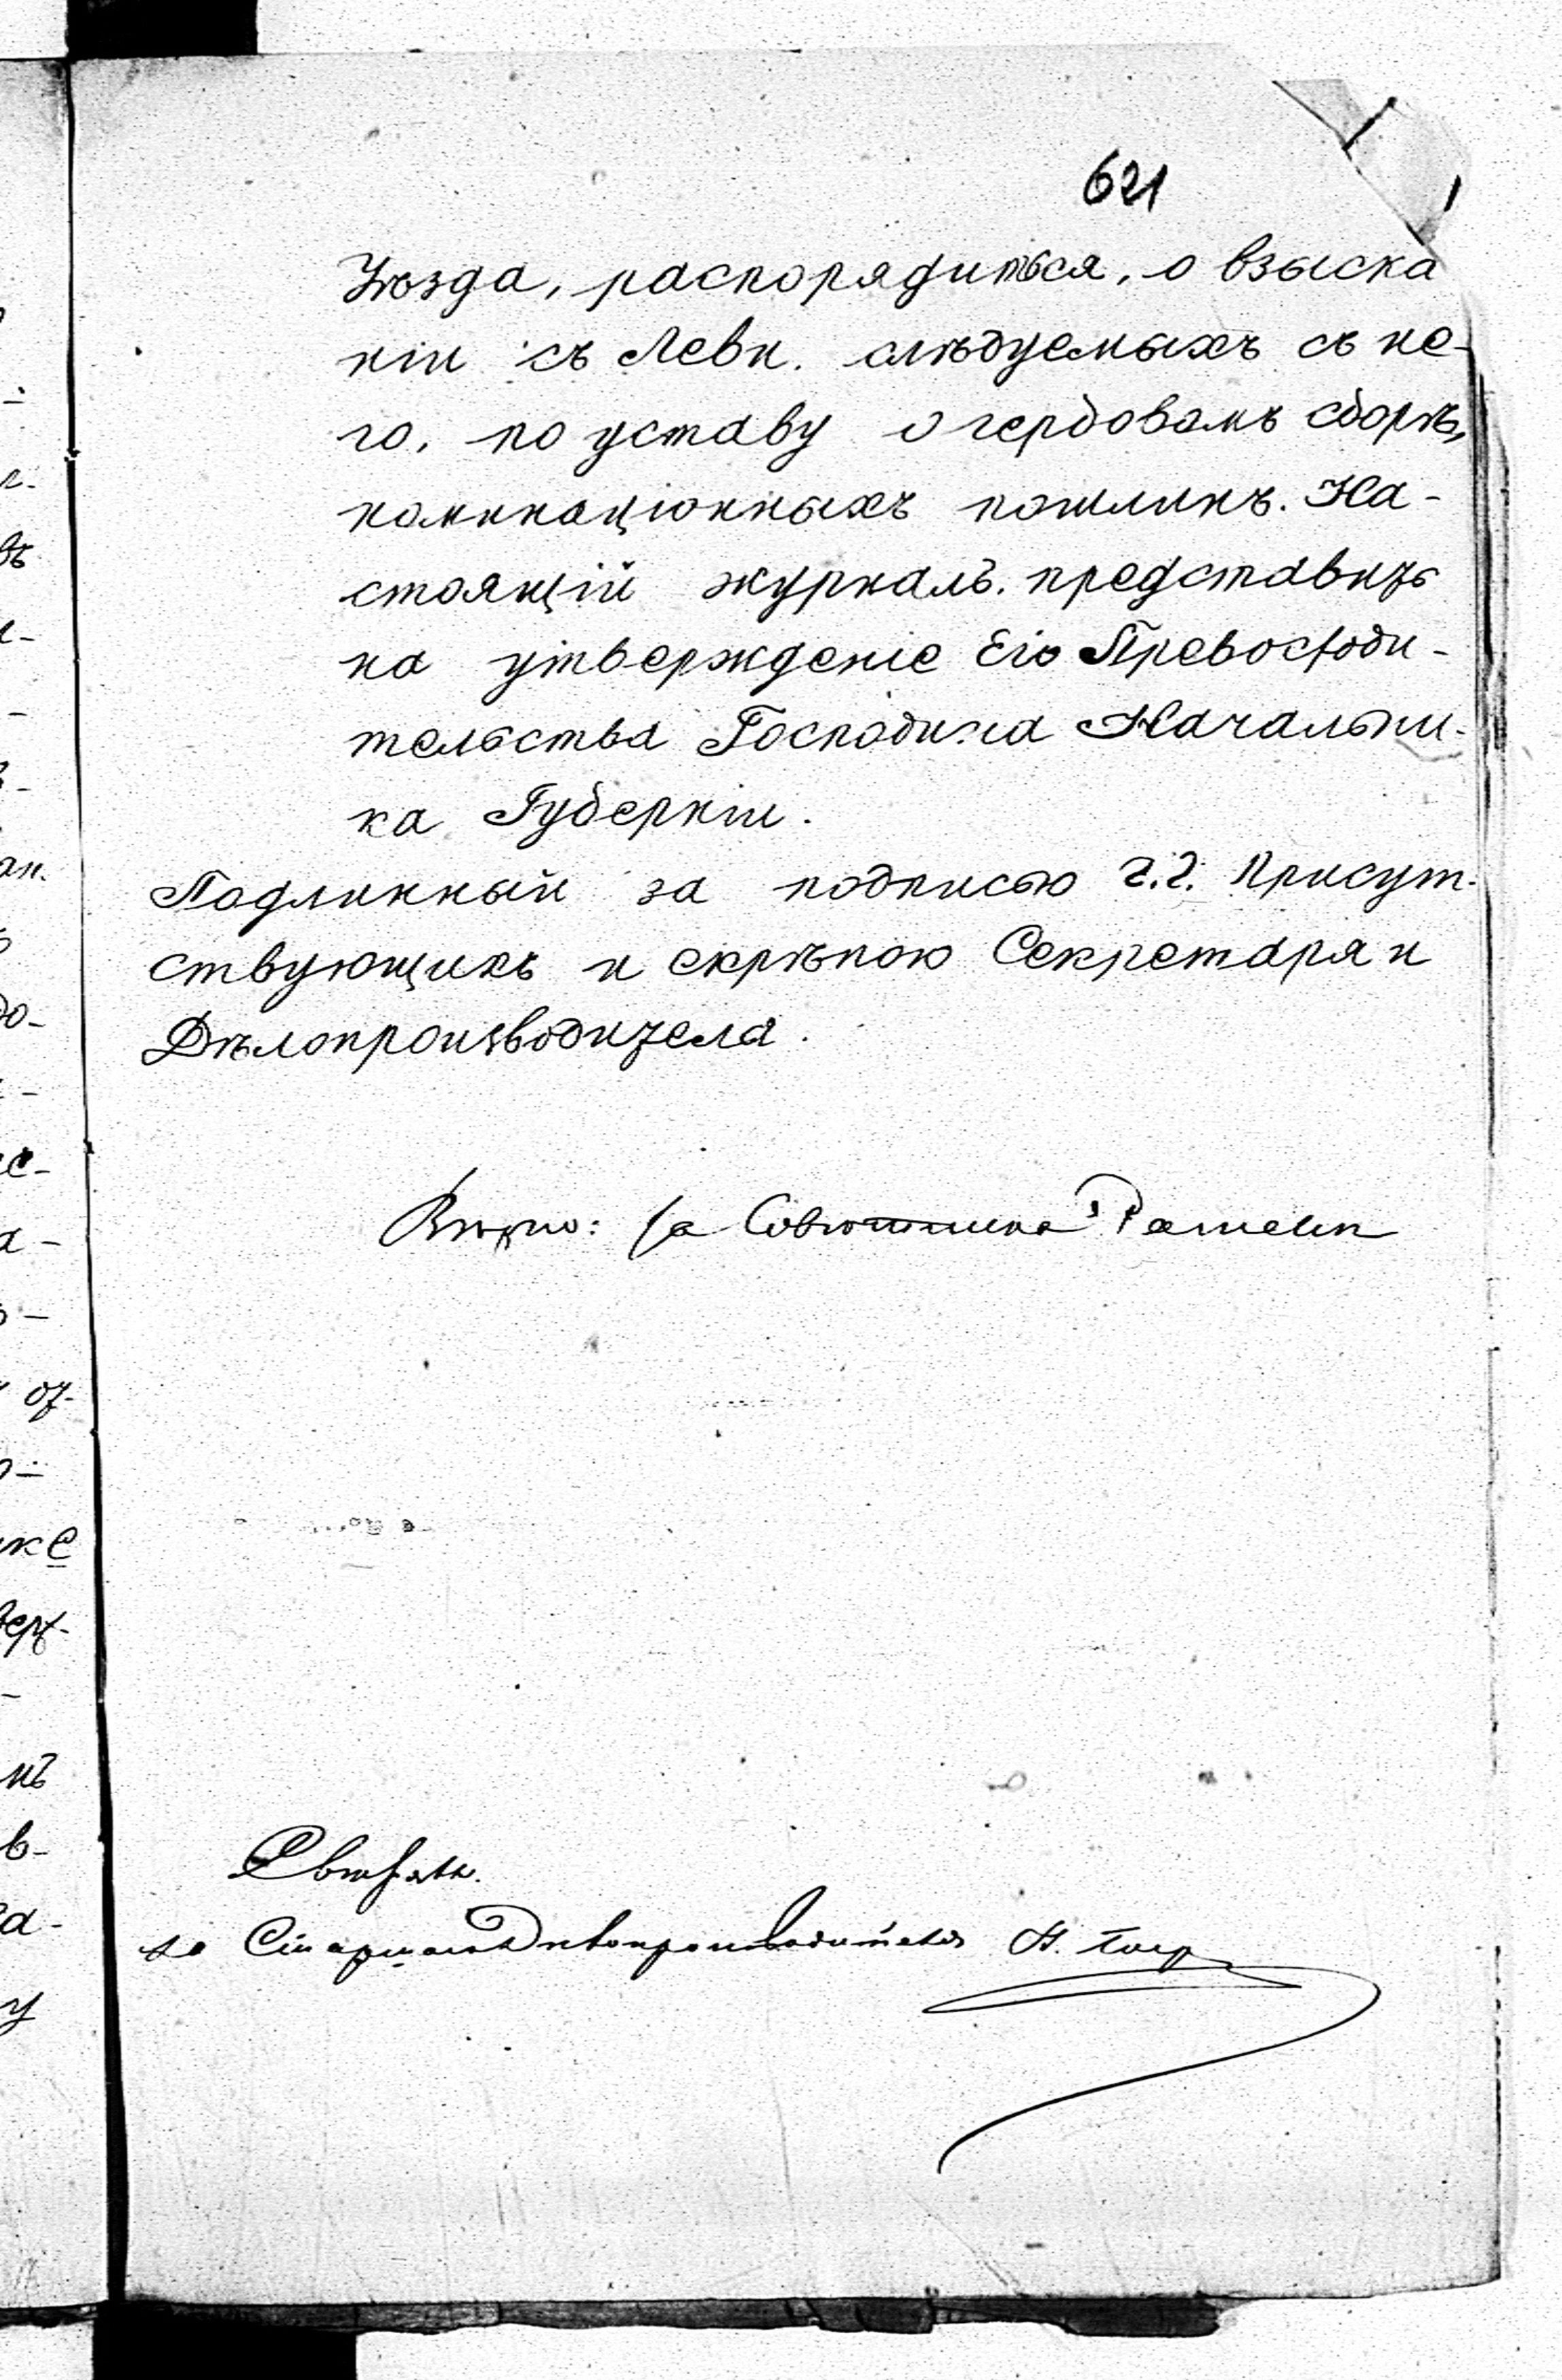 621
Уѣзда, распорядиться, о взыска
ніи съ Леви. слѣдуемыхъ съ не-
го, по уставу о гербовомъ сборѣ,
канцеляр
стоящій журналъ. представить
на утвержденіе Его Превосходи-
тельства Господина Начальни-
ка Губерніи.
Подлинный за подписью г.г. Присут-
ствующихъ и скрѣпою Секретаря и
Дѣлопроизводителя.
Вѣрно: за Совѣтника
Свѣрялъ.
за Старшаго Дѣлопроизводителя Н.